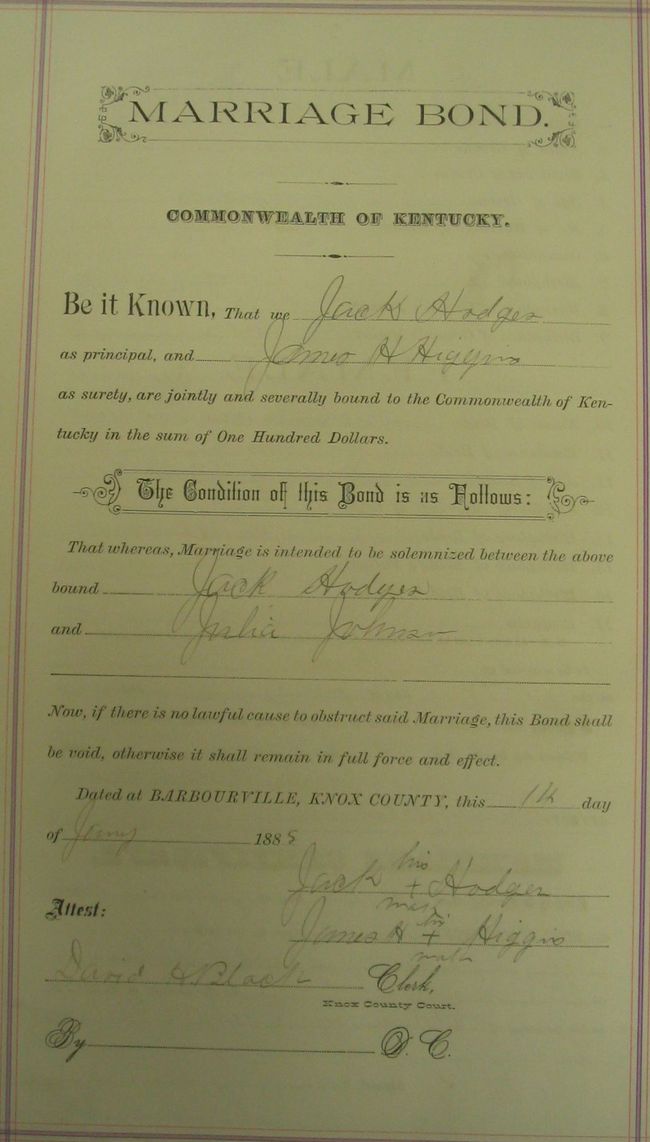 MARRIAGE BOND.
COMMONWEALTH OF KENTUCKY.
Be it Known, That we Jack Hodges
as principal, and James H Higgins
as surety, are jointly and severally bound to the Commonwealth of Ken-
tucky in the sum of One Hundred Dollars.
The Condition of this Bond is as Follows:
That whereas, Marriage is intended to be solemnized between the above
bound Jack Hodges
and Julia Johnson
Now, if there is no lawful cause to obstruct said Marriage, this Bond shall
be void, otherwise it shall remain in full force and effect.
Dated at BARBOURVILLE, KNOX COUNTY, this day
of Jany 1885
his
Jack + Hodges
mark
Attest:
his
James H + Higgins
mark
David H Black Clerk,
Knox County Court.
By D. C.